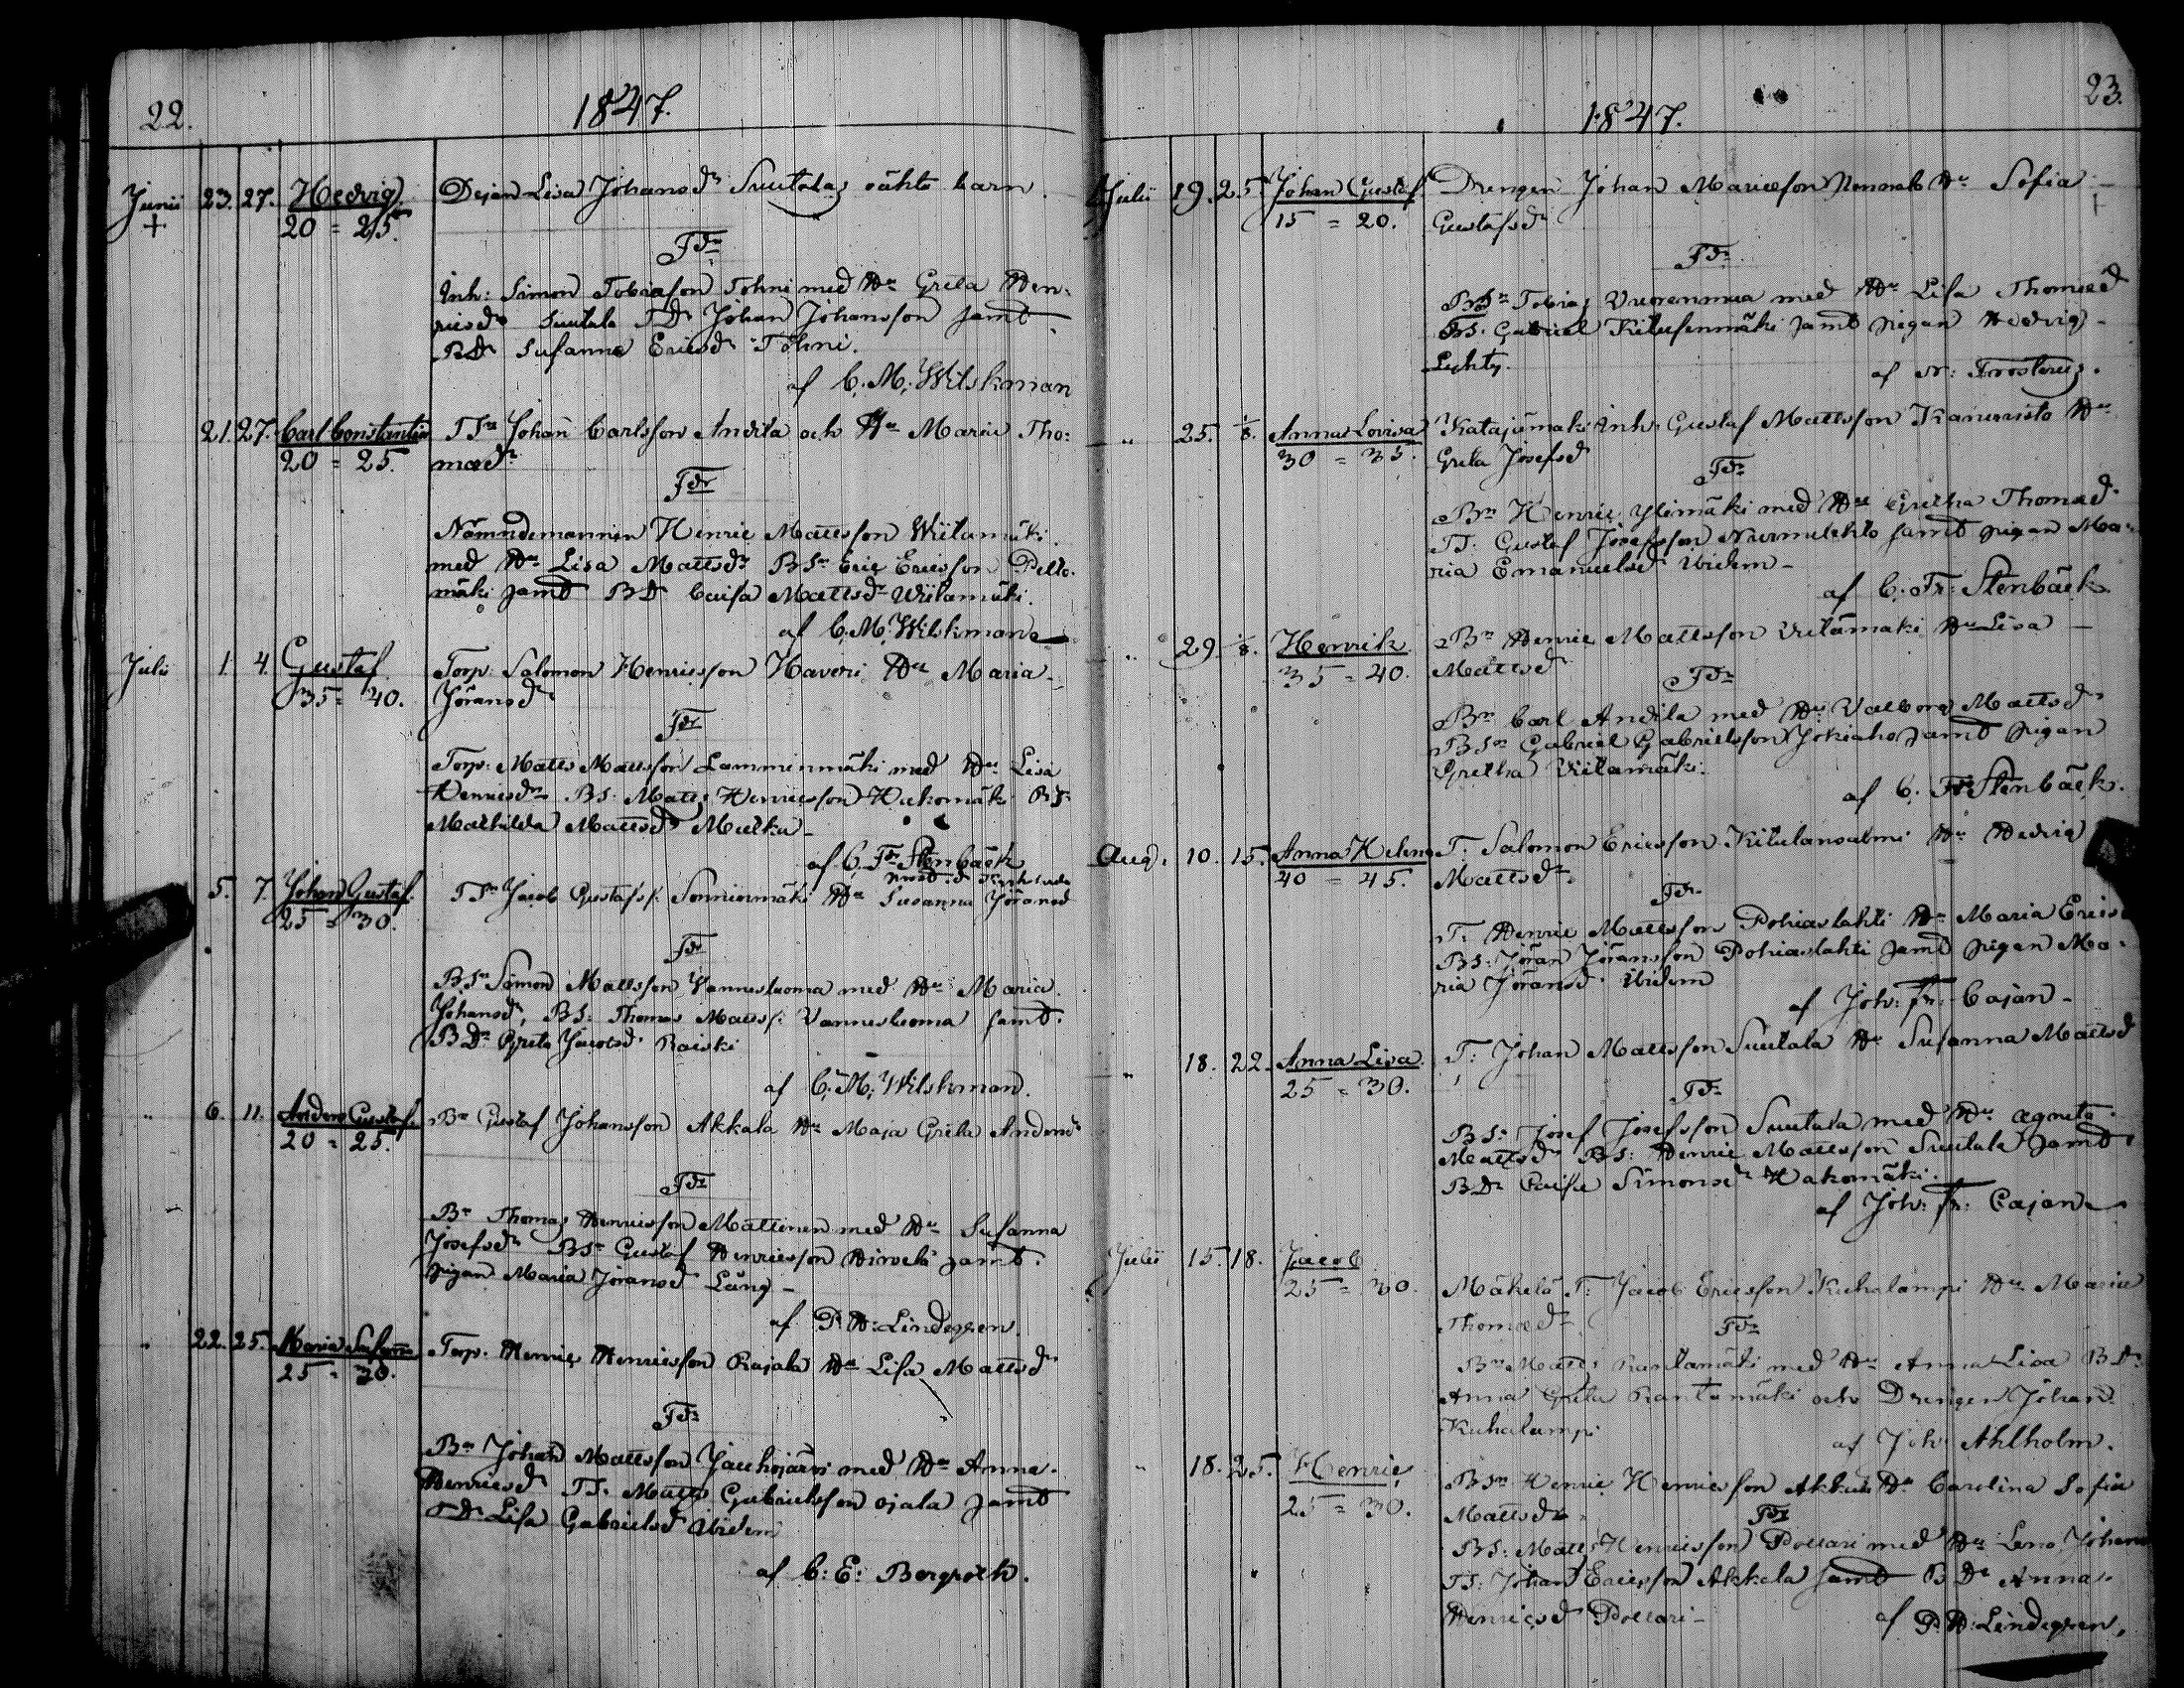 22.
1847.
Junii 23. 27. Hedvig Dejan Lisa Johansdr Suutalas oächta barn
+ 20 = 25.
Fdr
Inh: Simon Tobiasson Tohni med Hu Greta Hen-
ricsdr Suutala TDr Johan Johansson samt
BDr Susanna Ericsdr Tohni.
af C. M. Wilskman
21. 27. Carl Constantin TSn Johan Carlsson Andila och Hu Maria Tho-
20 = 25. masdr
Fdr
Nämndemannen Henric Mattsson Wiitamäki
med Hu Lisa Mattsdr BSn Eric Ericsson Pelto-
mäki samt BDr Caisa Mattsdr Wiitamäki.
af C. M. Wilskman
Julii 1. 4. Gustaf Torp: Salomon Henricsson Haveri Hu Maria
35 = 40. Jöransdr
Fdr
Torp: Matts Mattsson Lamminmäki med Hu Lisa
Henricsdr BS: Matts Henricsson Hakomäki
Mathilda Mattsdr
af C. Fr: Stenbäck
5. 7. Johan Gustaf TSn Jacob Gustafss. Hu Susanna Jöransd
25 = 30.
Fdr
BSn Simon Mattsson Vannesluoma med Hu Maria
Johansdr, BS: Thomas Matss: Vannesluoma samt
BDr Greta Jacobsd
af C. M. Wilskman.
" 6. 11. Anders Gustaf. Bn Gustaf Johansson Akkala Hu Maja Greta Andersdr
20 = 25.
Fdr
Bn Thomas Henricsson Mattinen med Hu Susanna
Josefsdr BSn Gustaf Henricsson Hirvelä samt
pigan Maria Jöransd Lång
af P. H: Lindegren.
" 22. 25. Maria Susanna Torp. Henric Henricsson Rajala Hu Lisa Mattsdr
25 = 30.
Fdr
Bn Johan Mattsson Jauhojärvi med Hu Anna
Henricsd TS: Matts Gabrielsson Ojala samt
TDr Lisa Gabrielsd ibidem
af C: E: Bergroth.
23.
1847.
Julii 19. 25. Johan Gustaf Drengen Johan Mariæson Hu Sofia
15 = 20. Gustafsdr
Fdr
BSn Tobias Vuorenmaa med Hu Lisa Thomæd
BS: Gabriel Kitusenmäki samt pigan Hedvig
af N: Frosterus.
" 25. 1/8. Anna Lovisa Katajamäki Inh: Gustaf Mattsson Kanervisto Hu
30 = 35. Greta Josefsd
Fdr
Bn Henric Ylimäki med Hu Gretha Thomæd
TS: Gustaf Josefsson Nurmilehto samt pigan Ma-
ria Emanuelsd ibidem
af C: Fr: Stenbäck
" 29. 1/8. Henrik Bn Henric Mattsson Viitamäki Hu Lisa
35 = 40. Mattsd
Fdr
Bn Carl Andila med Hu Valborg Mattsd
BSn Gabriel Gabrielsson Jokiaho samt pigan
Gretha Viitamäki.
af C. Fr: Stenbäck.
Aug: 10. 15. Anna Helena T: Salomon Ericsson Kitulansalmi Hu Hedvig
40 = 45. Mattsdr
Fdr
T: Henric Mattsson Pohiaslahti Hu Maria Erics
BS: Jöran Jöransson Pohiaslahti samt pigan Ma-
ria Jöransd ibidem
af Joh: Fr: Cajan
" 18. 22. Anna Lisa T: Johan Mattsson Suutala Hu Susanna Mattsd
25 = 30.
Fdr
BS: Josef Josefsson Suutala med Hu Agneta
Mattsdr BS: Henric Mattsson Suutala samt
BDr Caisa Simonsdr Hakomäki.
af Joh: Fr: Cajan
Julii 15. 18. Jacob
25 = 30. Mäkelä T: Jacob Ericsson Kuhalampi Hu Maria
Thomædr
Fdr
Bn Matts Rantamäki med Hu Anna Lisa BDr
Anna Greta Rantamäki och Drengen Johan
Kuhalampi
af Joh: Ahlholm.
" 18. 25. Henric BSn Henric Henricsson Akkala Hu Carolina Sofia
25 = 30. Mattsdr
Fdr
BS: Matts Henricsson Pollari med Hu Lena Johans
TS: Johan Ericsson Akkala samt BDr Anna
Henricsd Pollari
af P. H: Lindegren.